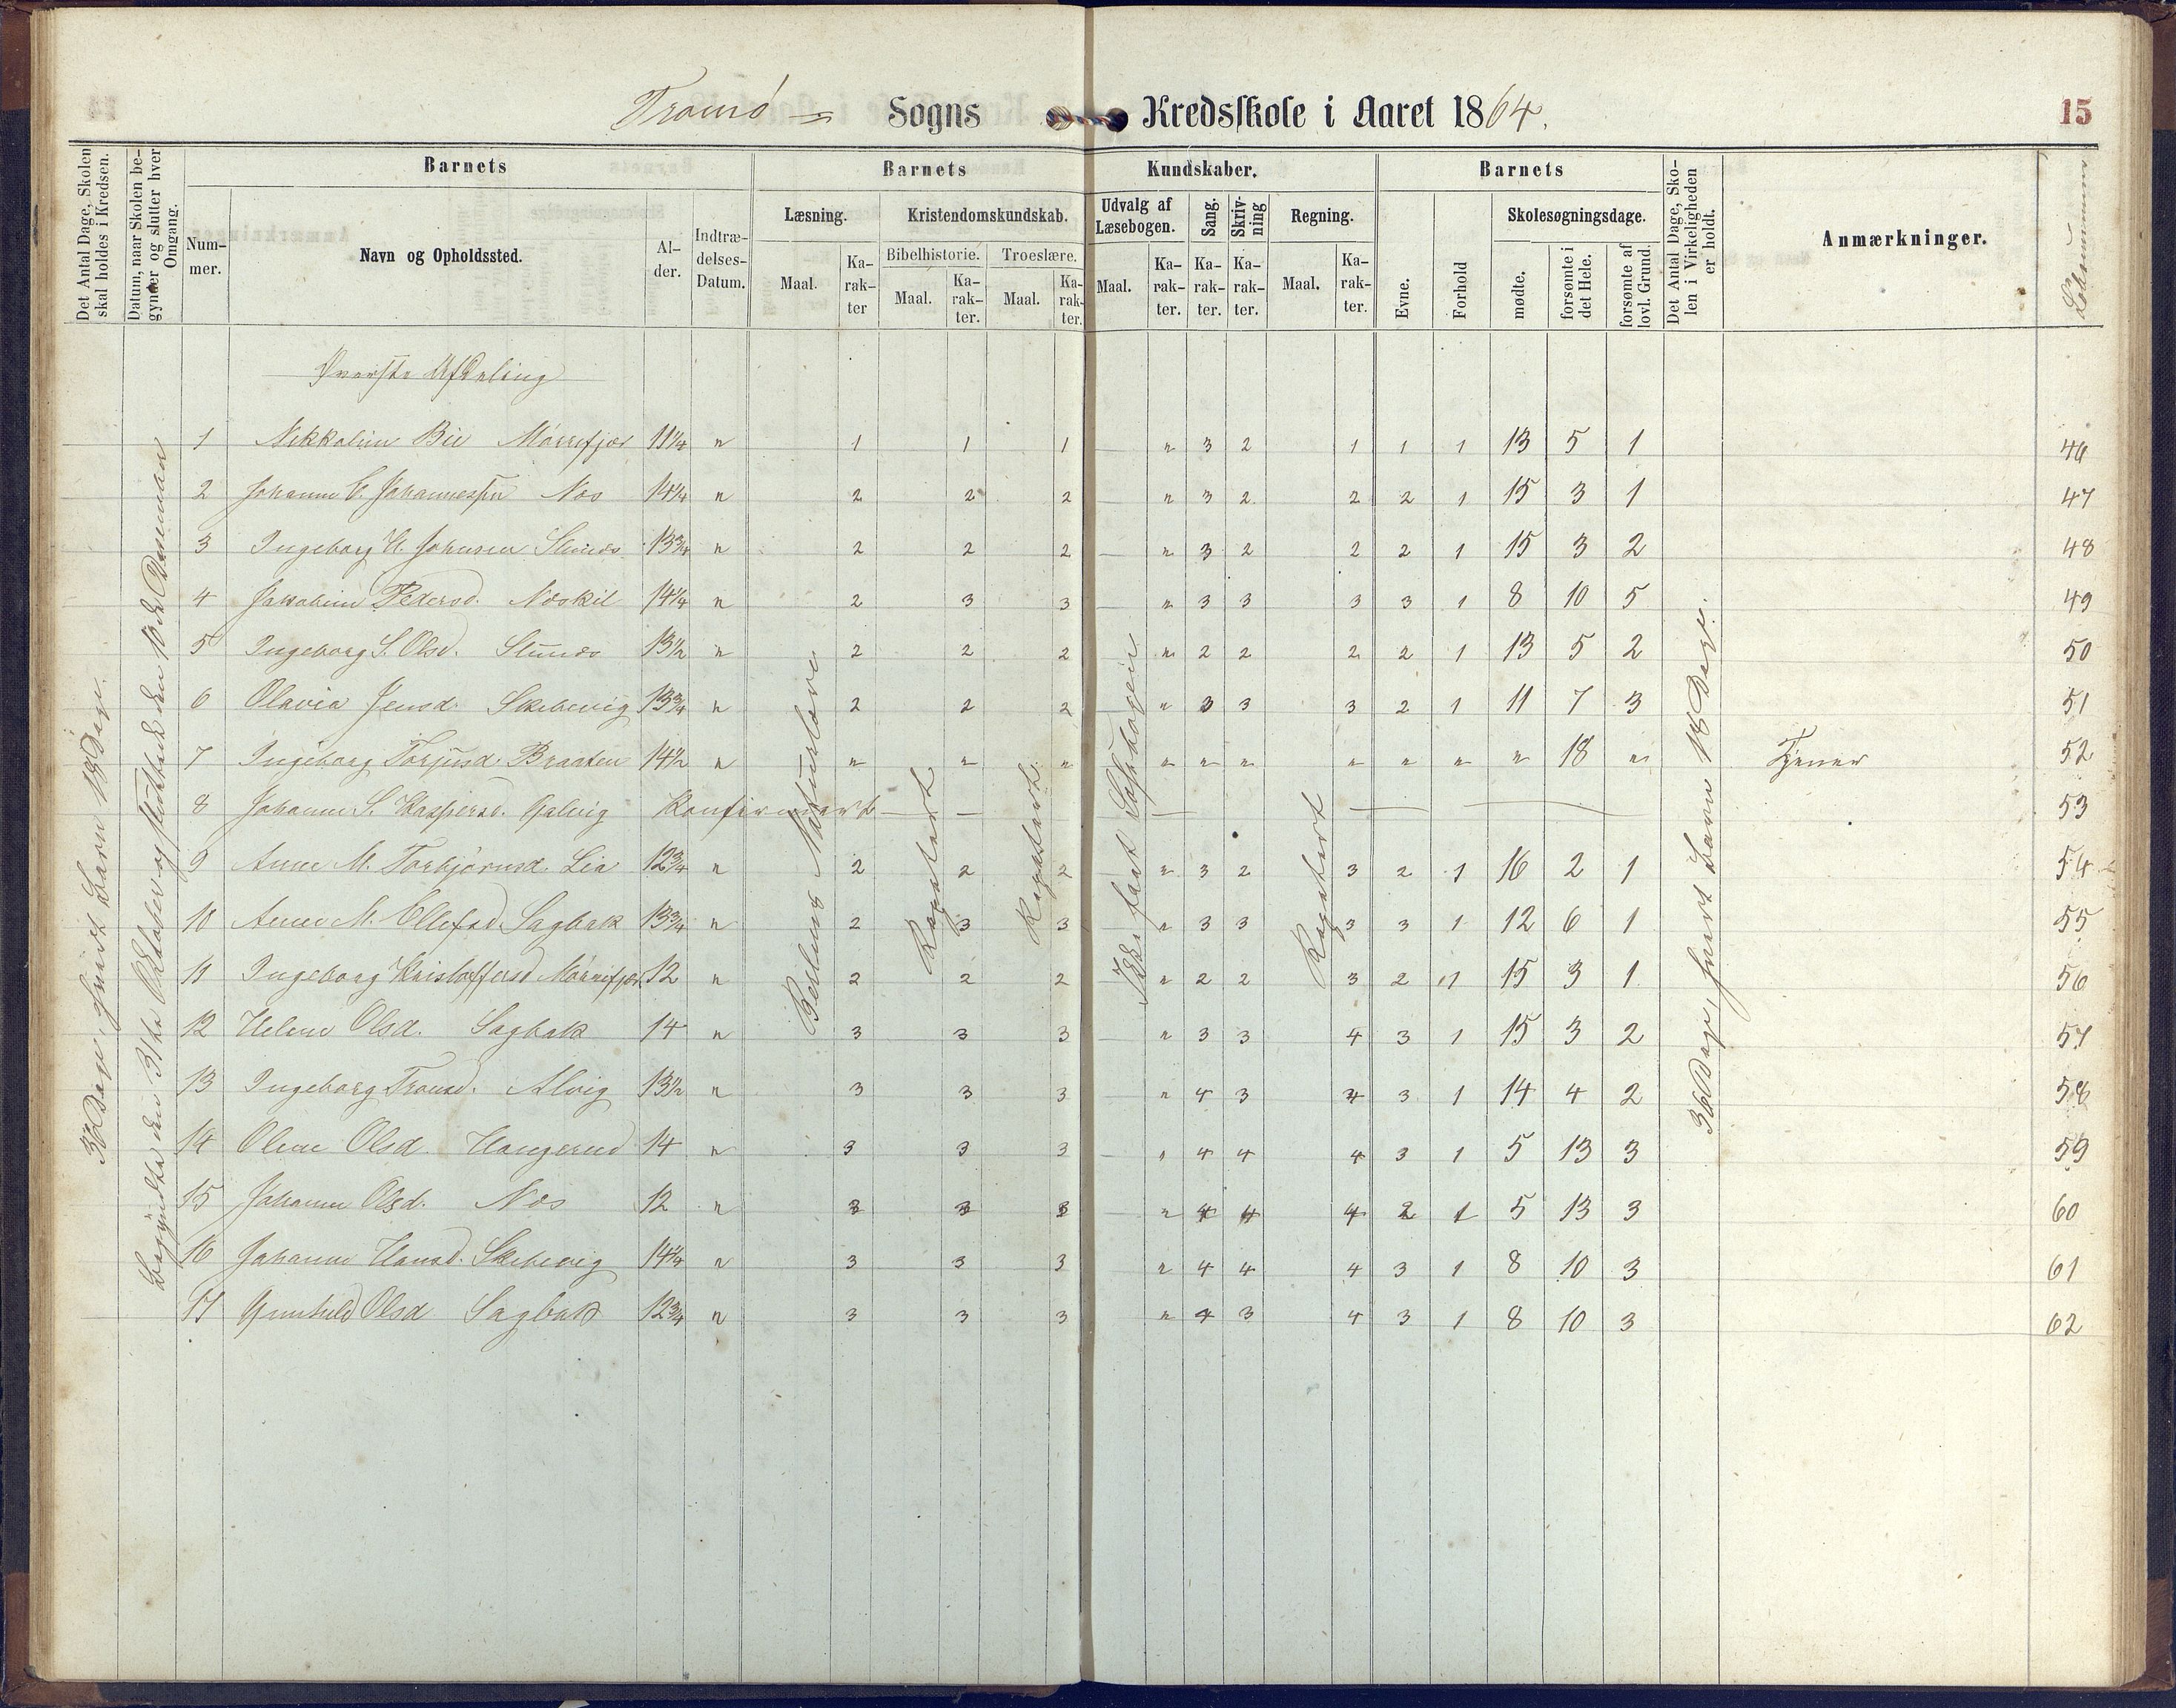 Tromø Sogns Kredsskole i Aaret 1864. 15
Det Antal Dage, Skolen skal holdes i Kredsen.
Datum, naar Skolen begynder og slutter hver Omgang.
Barnets Barnets Kundskaber. Barnets
Nummer. Navn og Opholdssted. Alder. Indtrædelses-Datum.
Læsning. Kristendomskundskab. Udvalg af Læsebogen. Sang. Skrivning Regning. Skolesøgningsdage.
Bibelhistorie. Troeslære.
Maal. Karakter Maal. Karakter. Maal. Karakter. Maal. Karakter. Karakter. Karakter. Maal. Karakter. Evne. Forhold mødte. forsømte i det Hele. forsømte af lovl. Grund.
Det Antal Dage, Skolen i Virkeligheden er holdt.
Anmærkninger.
Løbenummer
Øverste Afdeling
36 Dage, hvert Barn 18 Dage.
Begyndte den 31te Oktober og sluttede den 10de December
Naturlære
Repetert
Repetert
Ikke faat Læsebogen
Repetert
36 Dage, hvert Barn 18 Dage.
1 Nikkoline Bie Mørrefjær 11¼ " 1 1 1 " 3 2 1 1 1 13 5 1 46
2 Johanne C. Johannessen Næs 14¼ " 2 2 2 " 3 2 2 2 1 15 3 1 47
3 Ingeborg H. Johnsen 13¾ " 2 2 2 " 3 2 2 2 1 15 3 2 48
4 Jakobine Pedersd. Næskil 14¼ " 2 3 3 " 3 3 3 3 1 8 10 5 49
5 Ingeborg S. Olsd. 13½ " 2 2 2 " 2 2 2 2 1 13 5 2 50
6 Olavia Jensd. Skibevig 13¾ " 2 2 2 " 3 3 3 2 1 11 7 3 51
7 Ingeborg Torjusd. Braaten 14½ " " " " " " " " " " " 18 " Tjener 52
8 Johanne S. Kaspersd. Galvig Konfirmert 53
9 Anne M. Torbjørnsd. Lia 12¾ " 2 2 2 " 3 2 3 2 1 16 2 1 54
10 Anne M. Ellefsd. Sagbak 13¾ " 2 3 3 " 3 3 3 3 1 12 6 1 55
11 Ingeborg Kristoffersd. Mørrefjær 12 " 2 2 2 " 2 2 3 2 1 15 3 1 56
12 Helene Olsd. Sagbak 14 " 3 3 3 " 3 3 4 3 1 15 3 2 57
13 Ingeborg Tronsd. Alvig 13½ " 3 3 3 " 4 3 4 3 1 14 4 2 58
14 Olene Olsd. Haugerud 14 " 3 3 3 " 4 4 4 3 1 5 13 3 59
15 Johanne Olsd. Næs 12 " 3 3 3 " 4 4 4 2 1 5 13 3 60
16 Johanne Hansd. Skibevig 14¼ " 3 3 3 " 4 4 4 3 1 8 10 3 61
17 Gunhild Olsd. Sagbak 12¾ " 3 3 3 " 4 3 4 3 1 8 10 3 62